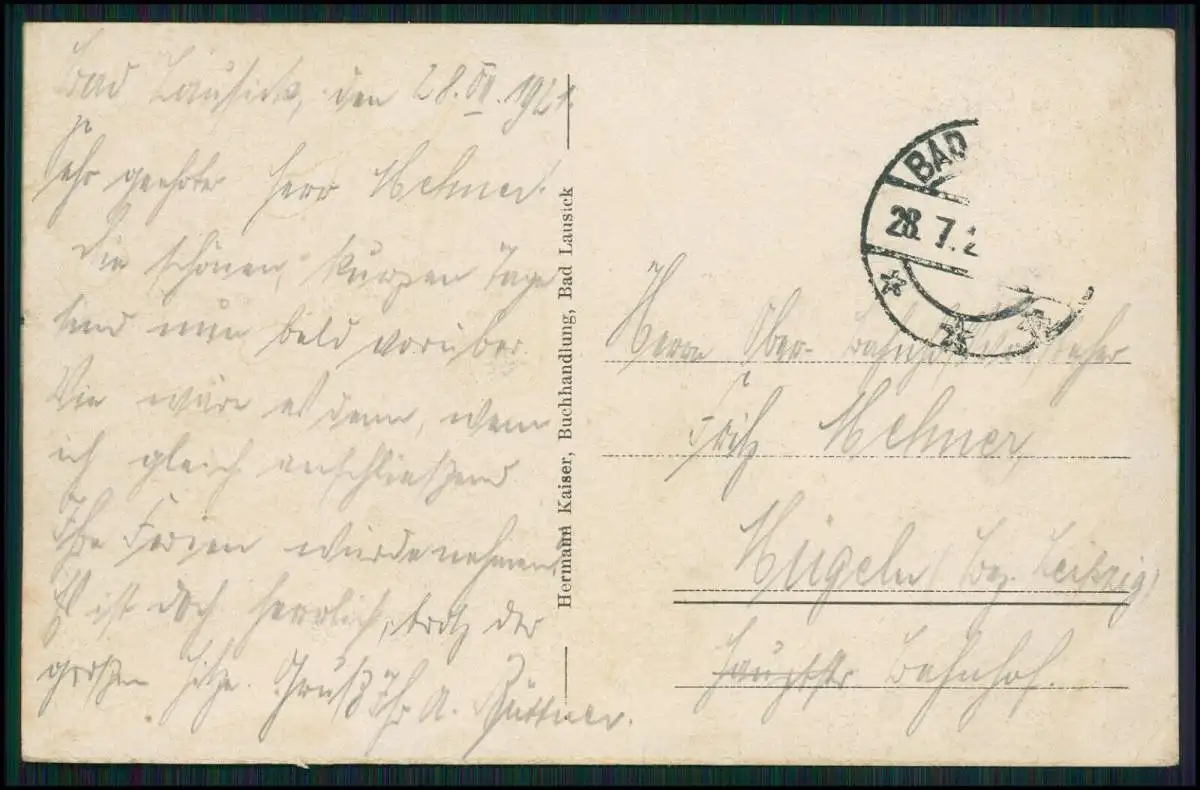 Bad Lausick, den 28.VII.1921.
Sehr geehrter Herr Mehner!
Die schönen, kurzen Tage
sind nun bald vorüber.
Wie wäre es denn, wenn
ich gleich anschließend
Ihre Ferien würde nehmen.
Es ist doch herrlich, trotz der
großen Hitze. Gruß Ihr A. Büttner.
Hermann Kaiser, Buchhandlung, Bad Lausick
BAD
28. 7. 2
Herrn Ober-Bahnhofsvorsteher
Fritz Mehner,
Mügeln (Bez. Leipzig)
Bahnhof.